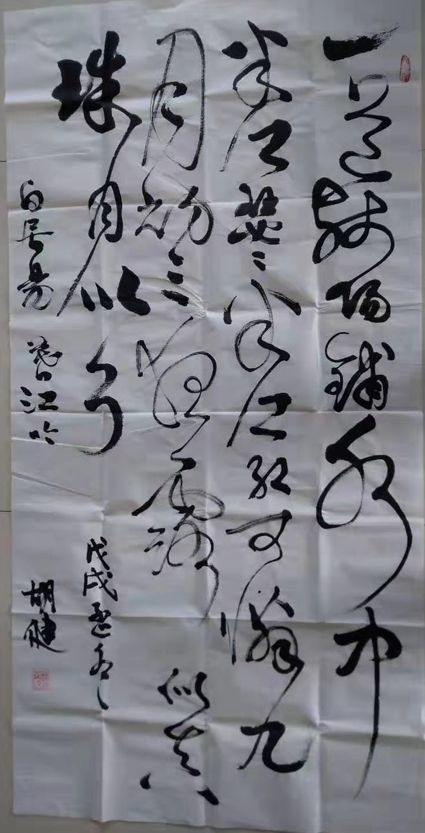 一道残陽鋪水中
半江瑟々半江红可憐九
月初三夜露似真
珠月似弓
戊戌
白居易暮江吟
胡健